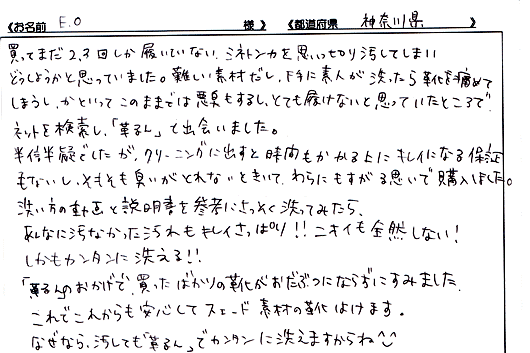 《お名前 E.O 様》 《都道府県 神奈川県 》
買ってまだ2,3回しか履いていない、ミネトンカを思いっきり汚してしまい
どうしようかと思っていました。難しい素材だし、下手に素人が洗ったら革化を痛めて
しまうし、かといってこのままでは悪臭もするし、とても履けないと思っていたところで
ネットを検索し、「革るん」と出会いました。
半信半疑でしたが、クリーニングに出すと時間もかかる上にキレイになる保証
もないし、そもそも臭いがとれないときいて、わらにもすがる思いで購入しました。
洗い方の動画と説明書を参考にさっそく洗ってみたら、
あんなに汚なかった汚れもキレイさっぱり!!ニオイも全然しない!
しかもカンタンに洗える!!
「革るん」のおかげで、買ったばかりの靴がおだぶつにならずにすみました。
これでこれからも安心してスエード素材の靴はけます。
なぜなら、汚しても「革るん」でカンタンに洗えますからね